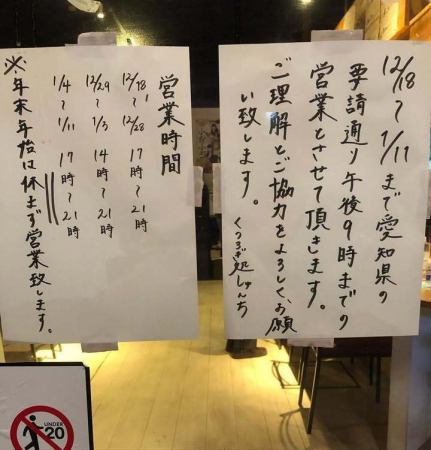 12/18〜1/11まで愛知県の
要請通り午後9時までの
営業とさせて頂きます。
ご理解とご協力をよろしくお願
い致します。
くつろぎ処しゅんち
営業時間
12/18〜12/28 17時〜21時
12/29〜1/3 14時〜21時
1/4〜1/11 17時〜21時
※年末年始は休まず営業致します。
UNDER
20